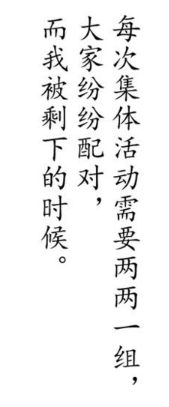 每次集体活动需要两两一组，
大家纷纷配对，
而我被剩下的时候。